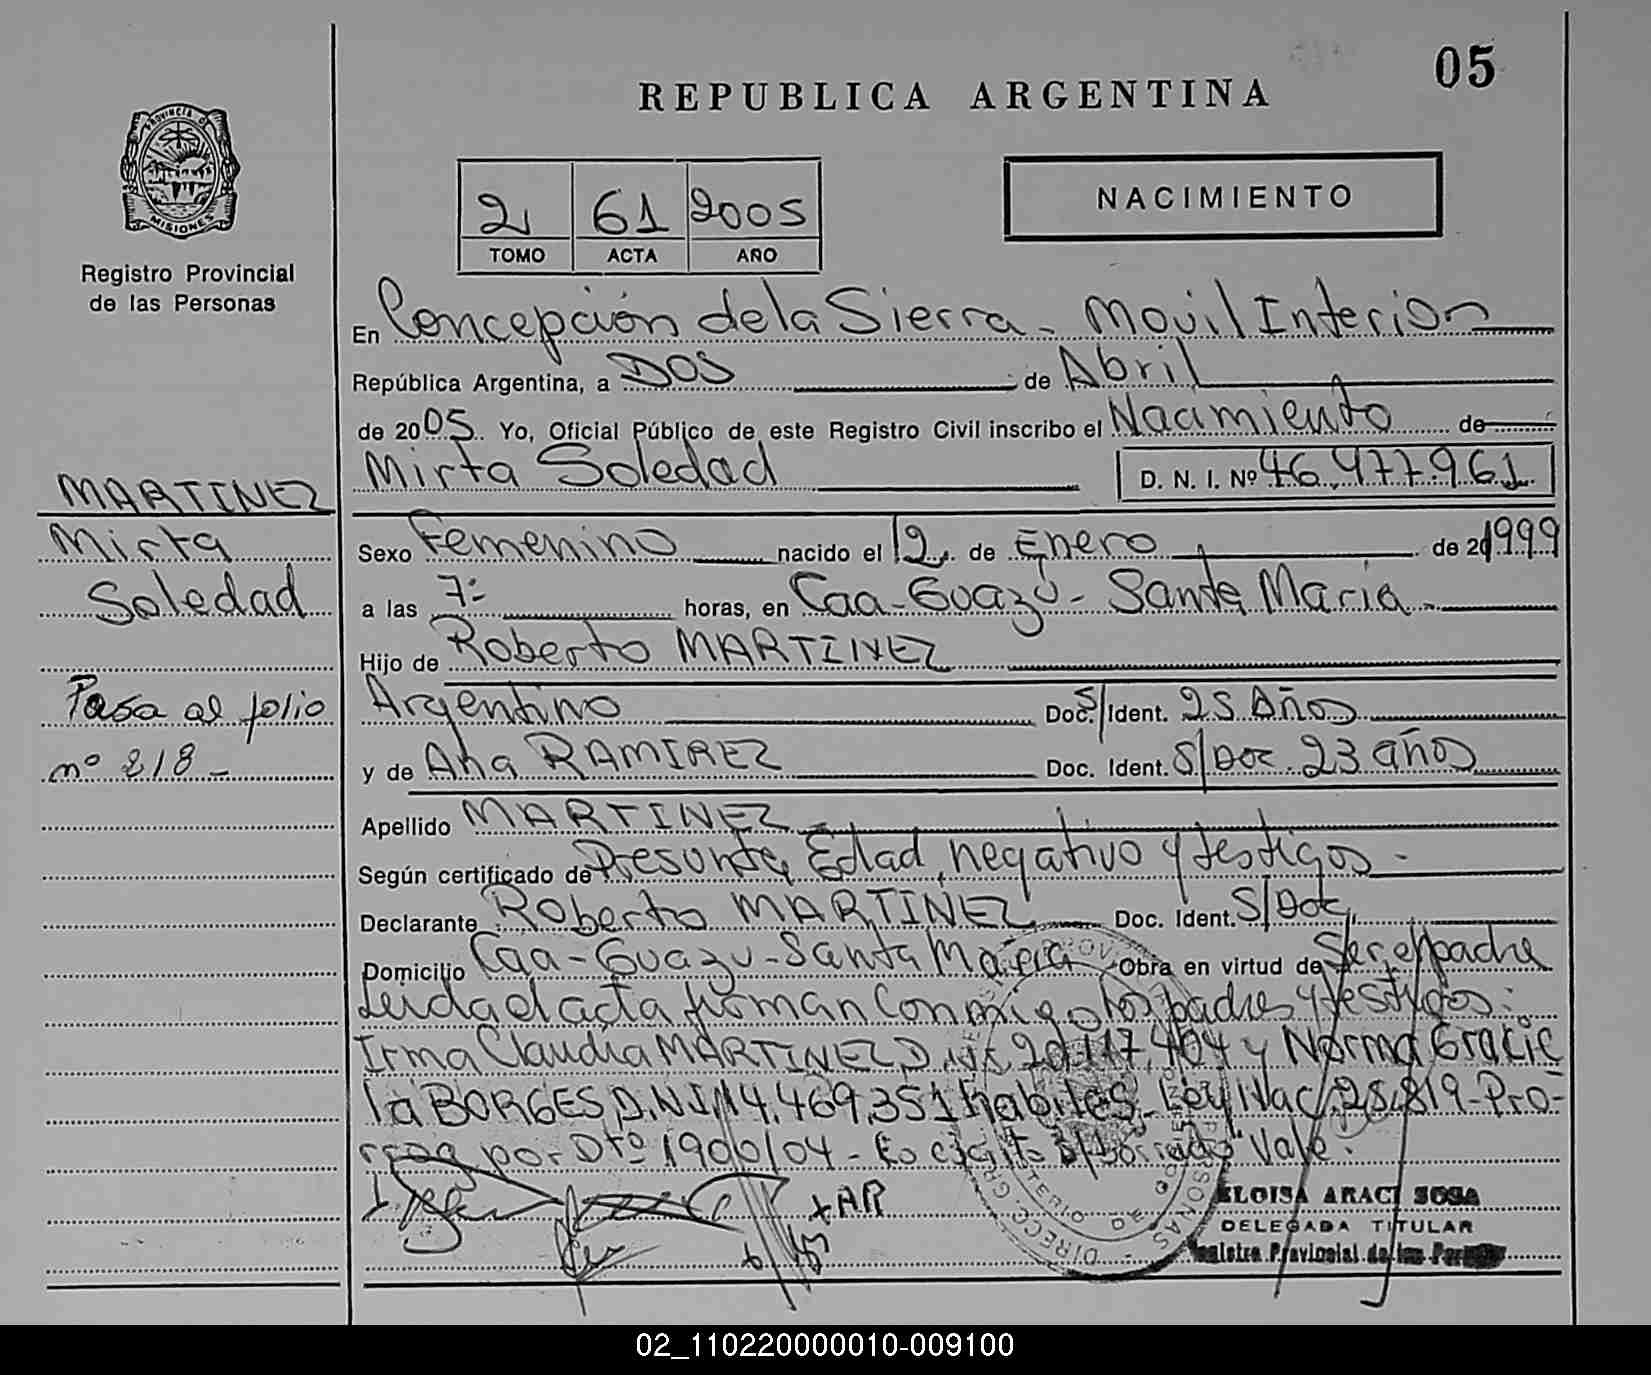 05
REPUBLICA ARGENTINA
PROVINCIA DE
MISIONES
Registro Provincial
de las Personas
2 61 2005
TOMO ACTA AÑO
NACIMIENTO
En Concepción de la Sierra - Movil Interior
República Argentina, a DOS de Abril
de 2005. Yo, Oficial Público de este Registro Civil inscribo el Nacimiento de
Mirta Soledad D. N. I. Nº 46.977.961
MARTINEZ
Mirta
Soledad
Pasa al folio
nº 218 -
Sexo Femenino nacido el 12 de Enero de 1999
a las 7:- horas, en Caa-Guazú - Santa María -
Hijo de Roberto MARTINEZ
Argentino Doc. S/ Ident. 25 Años
y de Ana RAMIREZ Doc. Ident. S/Doc. 23 años
Apellido MARTINEZ
Según certificado de Presunta Edad, negativo y testigos -
Declarante Roberto MARTINEZ Doc. Ident. S/Doc.
Domicilio Caa-Guazu-Santa María Obra en virtud de Ser el padre
Leida el acta firman Conmigo los padres y testigos:
Irma Claudia MARTINEZ D.N.I. 20.117.404 y Norma Gracie
la BORGES D.N.I. 14.469.351 habiles. Ley Nac. 25.819-Pro-
rrog por Dto 1900/04 - Lo escrito s/borrado "Vale".
+AR
ELOISA ARACI SOSA
DELEGADA TITULAR
Registro Provincial de las Personas
02_110220000010-009100